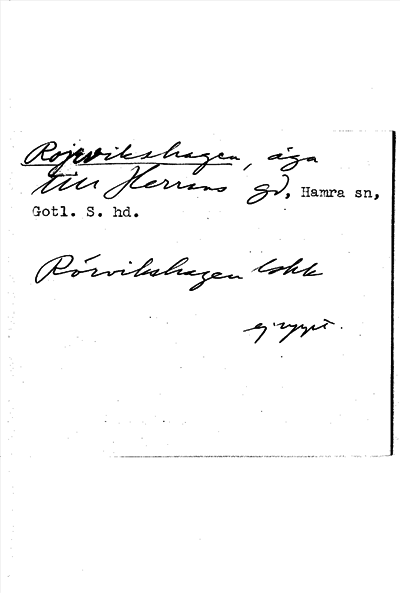 Rojrvikshagen, äga
till Herrans gd, Hamra sn,
Gotl. S. hd.
Rörvikshagen lskk
ej nyst.